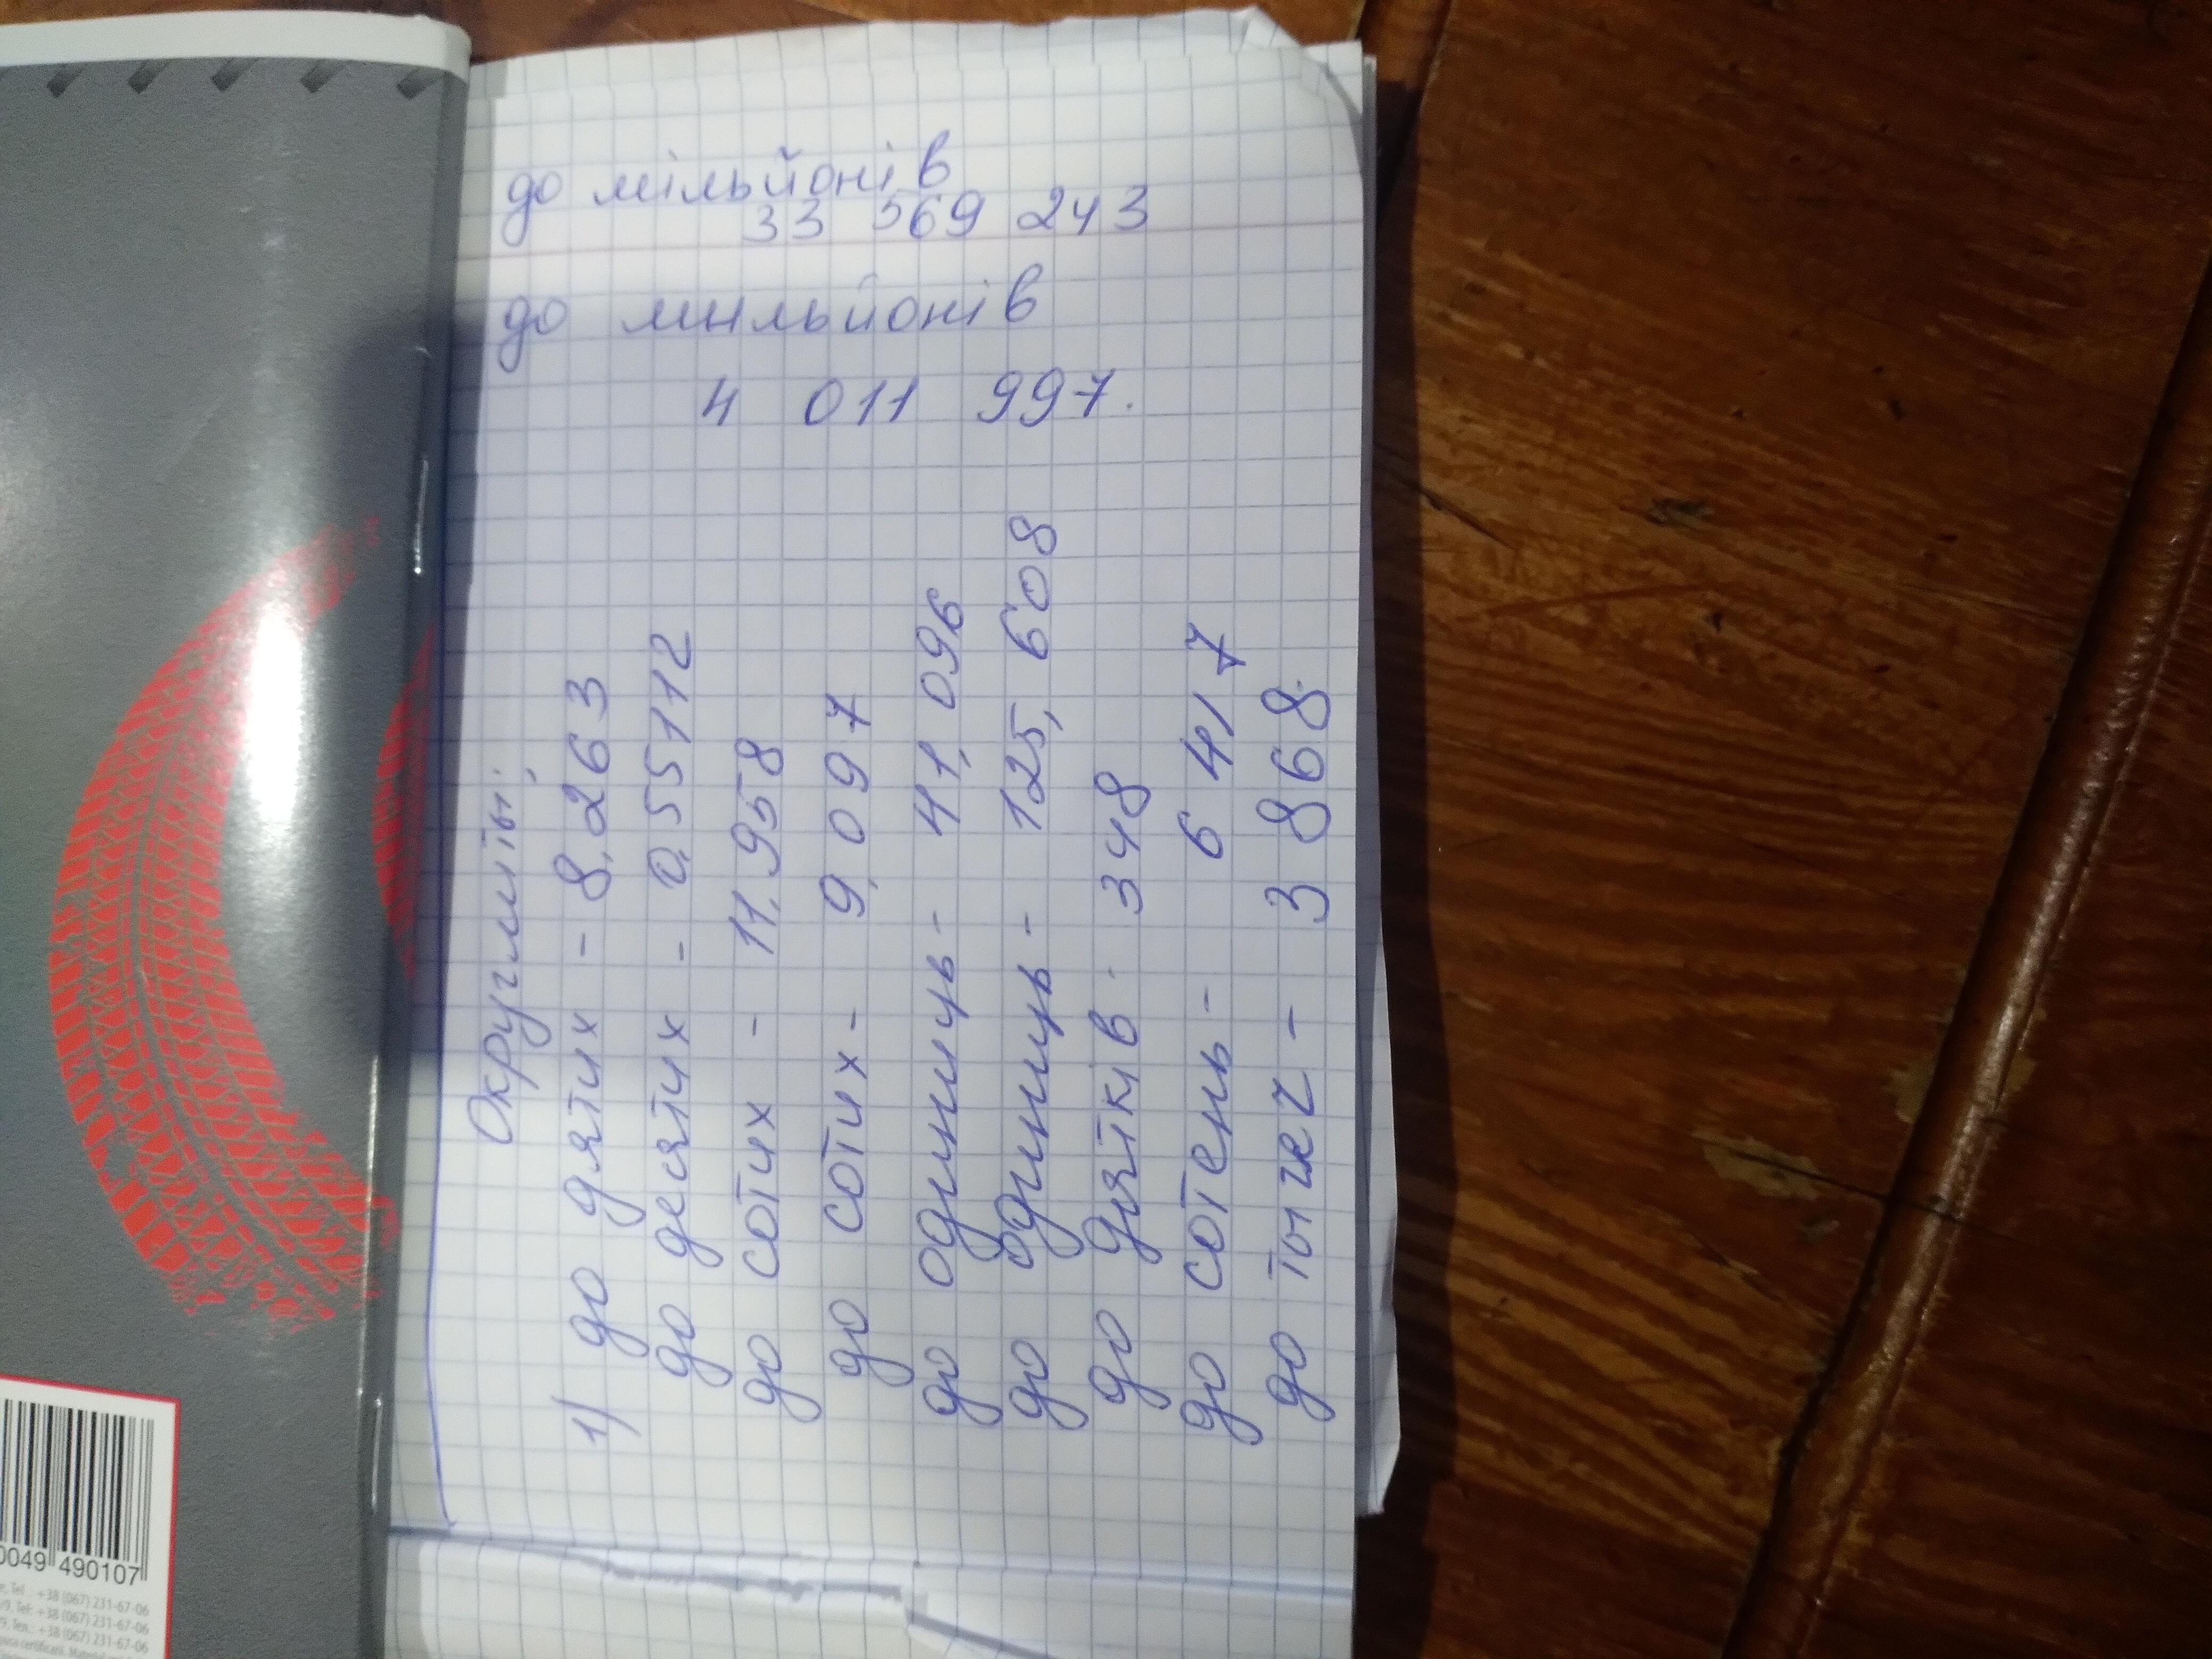 Округлити:
1) до дятих - 8,263
до десятих - 0,55112
до сотих - 11,958
до сотих - 9,097
до одиниць - 41,096
до одиниць - 125,608
до дятків - 348
до сотень - 6417
до тысяч - 3868.
до мільйонів
33 569 243
до мильйонів
4 011 997.
0049 490107
Tel.: +38 (067) 231-67-06
Tel: +38 (067) 231-67-06
Тел.: +38 (067) 231-67-06